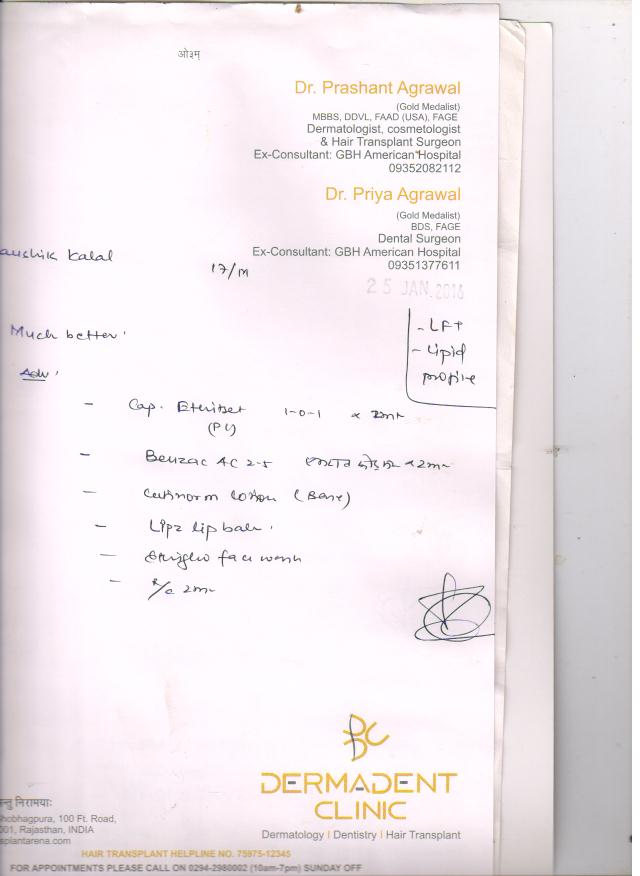 ओ३म्
Dr. Prashant Agrawal
(Gold Medalist)
MBBS, DDVL, FAAD (USA), FAGE
Dermatologist, cosmetologist
& Hair Transplant Surgeon
Ex-Consultant: GBH American Hospital
09352082112
Dr. Priya Agrawal
(Gold Medalist)
BDS, FAGE
Dental Surgeon
Ex-Consultant: GBH American Hospital
09351377611
aushik Kalal
17/M
25 JAN 2016
Much better
- LFT
- Lipid
profile
Adv
- Cap. 1-0-1 x
- Benzac AC 2.5 x 2m
- lotion (Base)
- Lipz lip balm
- face wash
- R/c 2m
DERMADENT
CLINIC
Dermatology | Dentistry | Hair Transplant
न्तु निरामयाः
hobhagpura, 100 Ft. Road,
001, Rajasthan, INDIA
splantarena.com
HAIR TRANSPLANT HELPLINE NO. 75975-12345
FOR APPOINTMENTS PLEASE CALL ON 0294-2980002 (10am-7pm) SUNDAY OFF